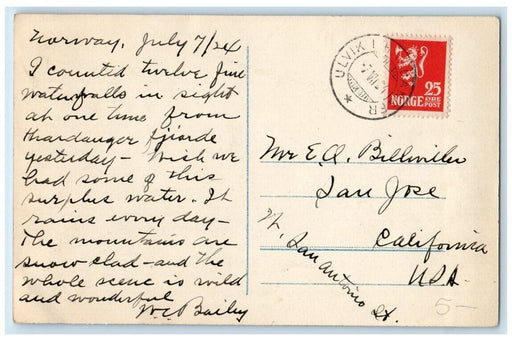 Norway, July 7/24
I counted twelve fine
waterfalls in sight
at one time from
Hardanger fjiorde
yesterday - Wish we
had some of this
surplus water. It
rains every day -
The mountains are
snow clad - and the
whole scene is wild
and wonderful
W.C. Bailey
ULVIK I
25
NORGE ØRE
POST
Mr E.O. Billwiller
San Jose
California
W. San Antonio St.
USA.
5-